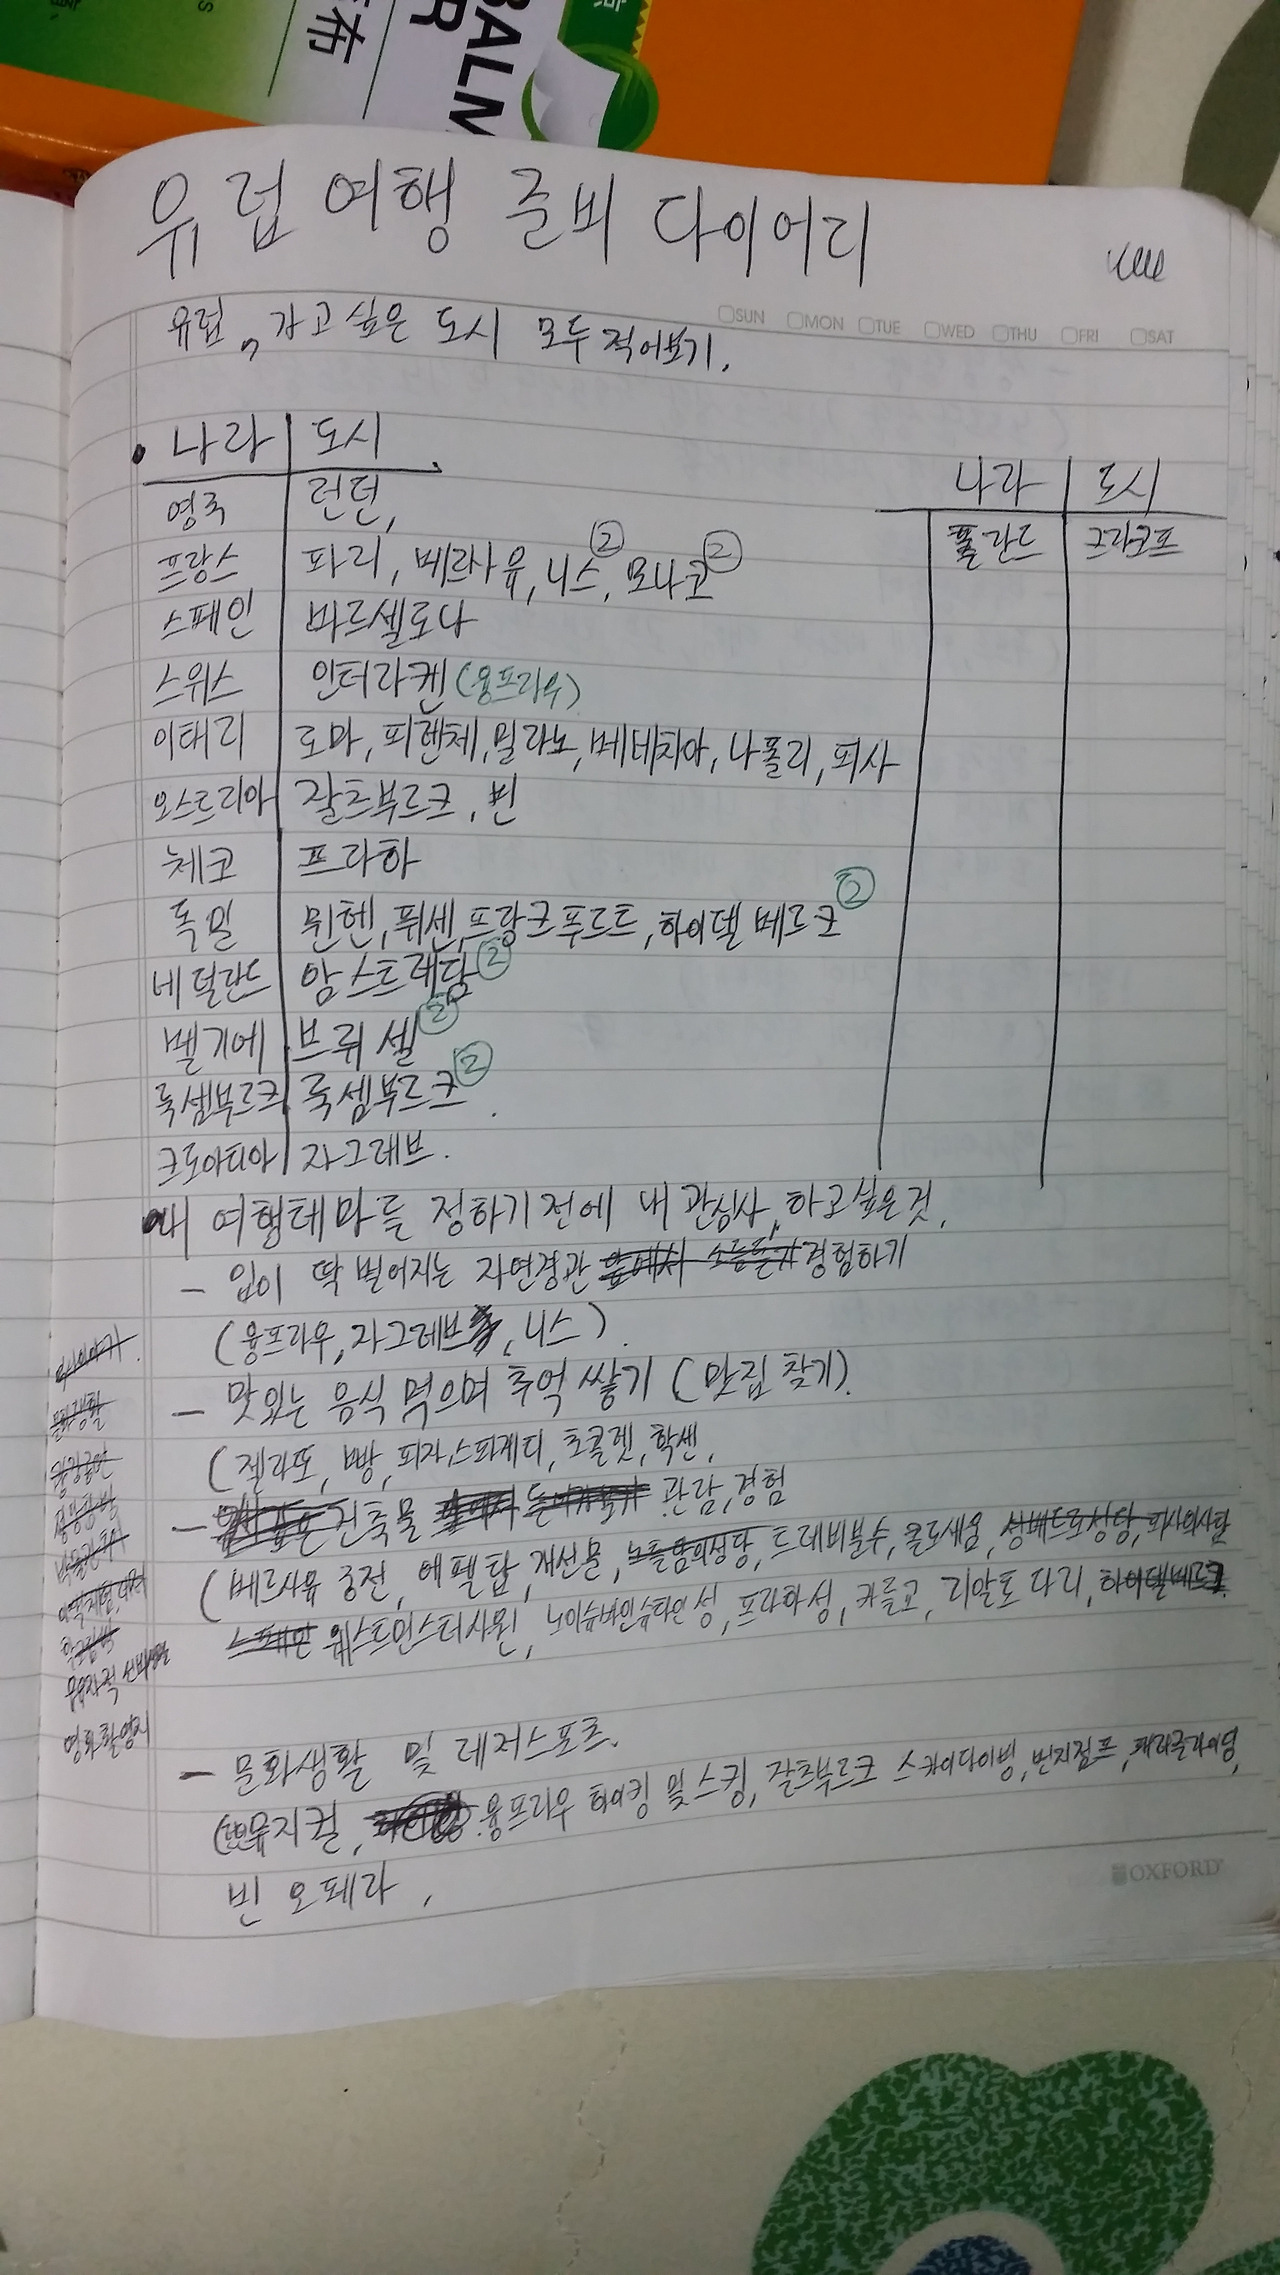 BALM
布
유럽여행 준비 다이어리
SUN MON TUE WED THU FRI SAT
유럽, 가고싶은 도시 모두 적어보기.
나라 도시
영국 런던,
프랑스 파리, 베르사유, 니스②, 모나코②
스페인 바르셀로나
스위스 인터라켄 (융프라우)
이태리 로마, 피렌체, 밀라노, 베네치아, 나폴리, 피사
오스트리아 잘츠부르크, 빈
체코 프라하
독일 뮌헨, 퓌센, 프랑크푸르트, 하이델베르크②
네덜란드 암스트레담②
벨기에 브뤼셀②
룩셈부르크 룩셈부르크②
크로아티아 자그레브.
나라 도시
폴란드 크라코프
내 여행테마를 정하기전에 내 관심사, 하고싶은것.
- 입이 딱 벌어지는 자연경관 경험하기
(융프라우, 자그레브, 니스)
- 맛있는 음식 먹으며 추억 쌓기 (맛집 찾기).
(젤라또, 빵, 피자, 스파게티, 초콜렛, 학센,
- 건축물 관람, 경험
(베르사유 궁전, 에펠탑, 개선문, 노틀담의성당, 트레비분수, 콜로세움, 성베드로성당, 피사의사탑
스페인 웨스트민스터사원, 노이슈바인슈타인성, 프라하성, 카를교, 리알토 다리, 하이델베르크
문화생활
영화촬영지
- 문화생활 및 레저스포츠.
(뮤지컬, 융프라우 하이킹 및 스킹, 잘츠부르크 스카이다이빙, 번지점프, 패러글라이딩,
빈 오페라,
OXFORD